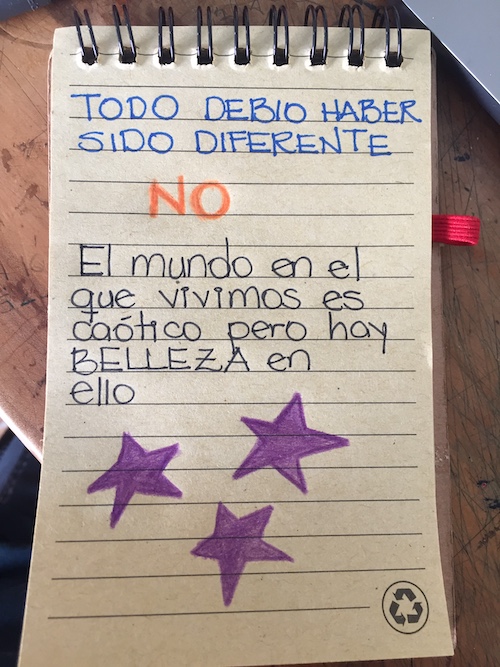 TODO DEBIO HABER
SIDO DIFERENTE
NO
El mundo en el
que vivimos es
caótico pero hay
BELLEZA en
ello